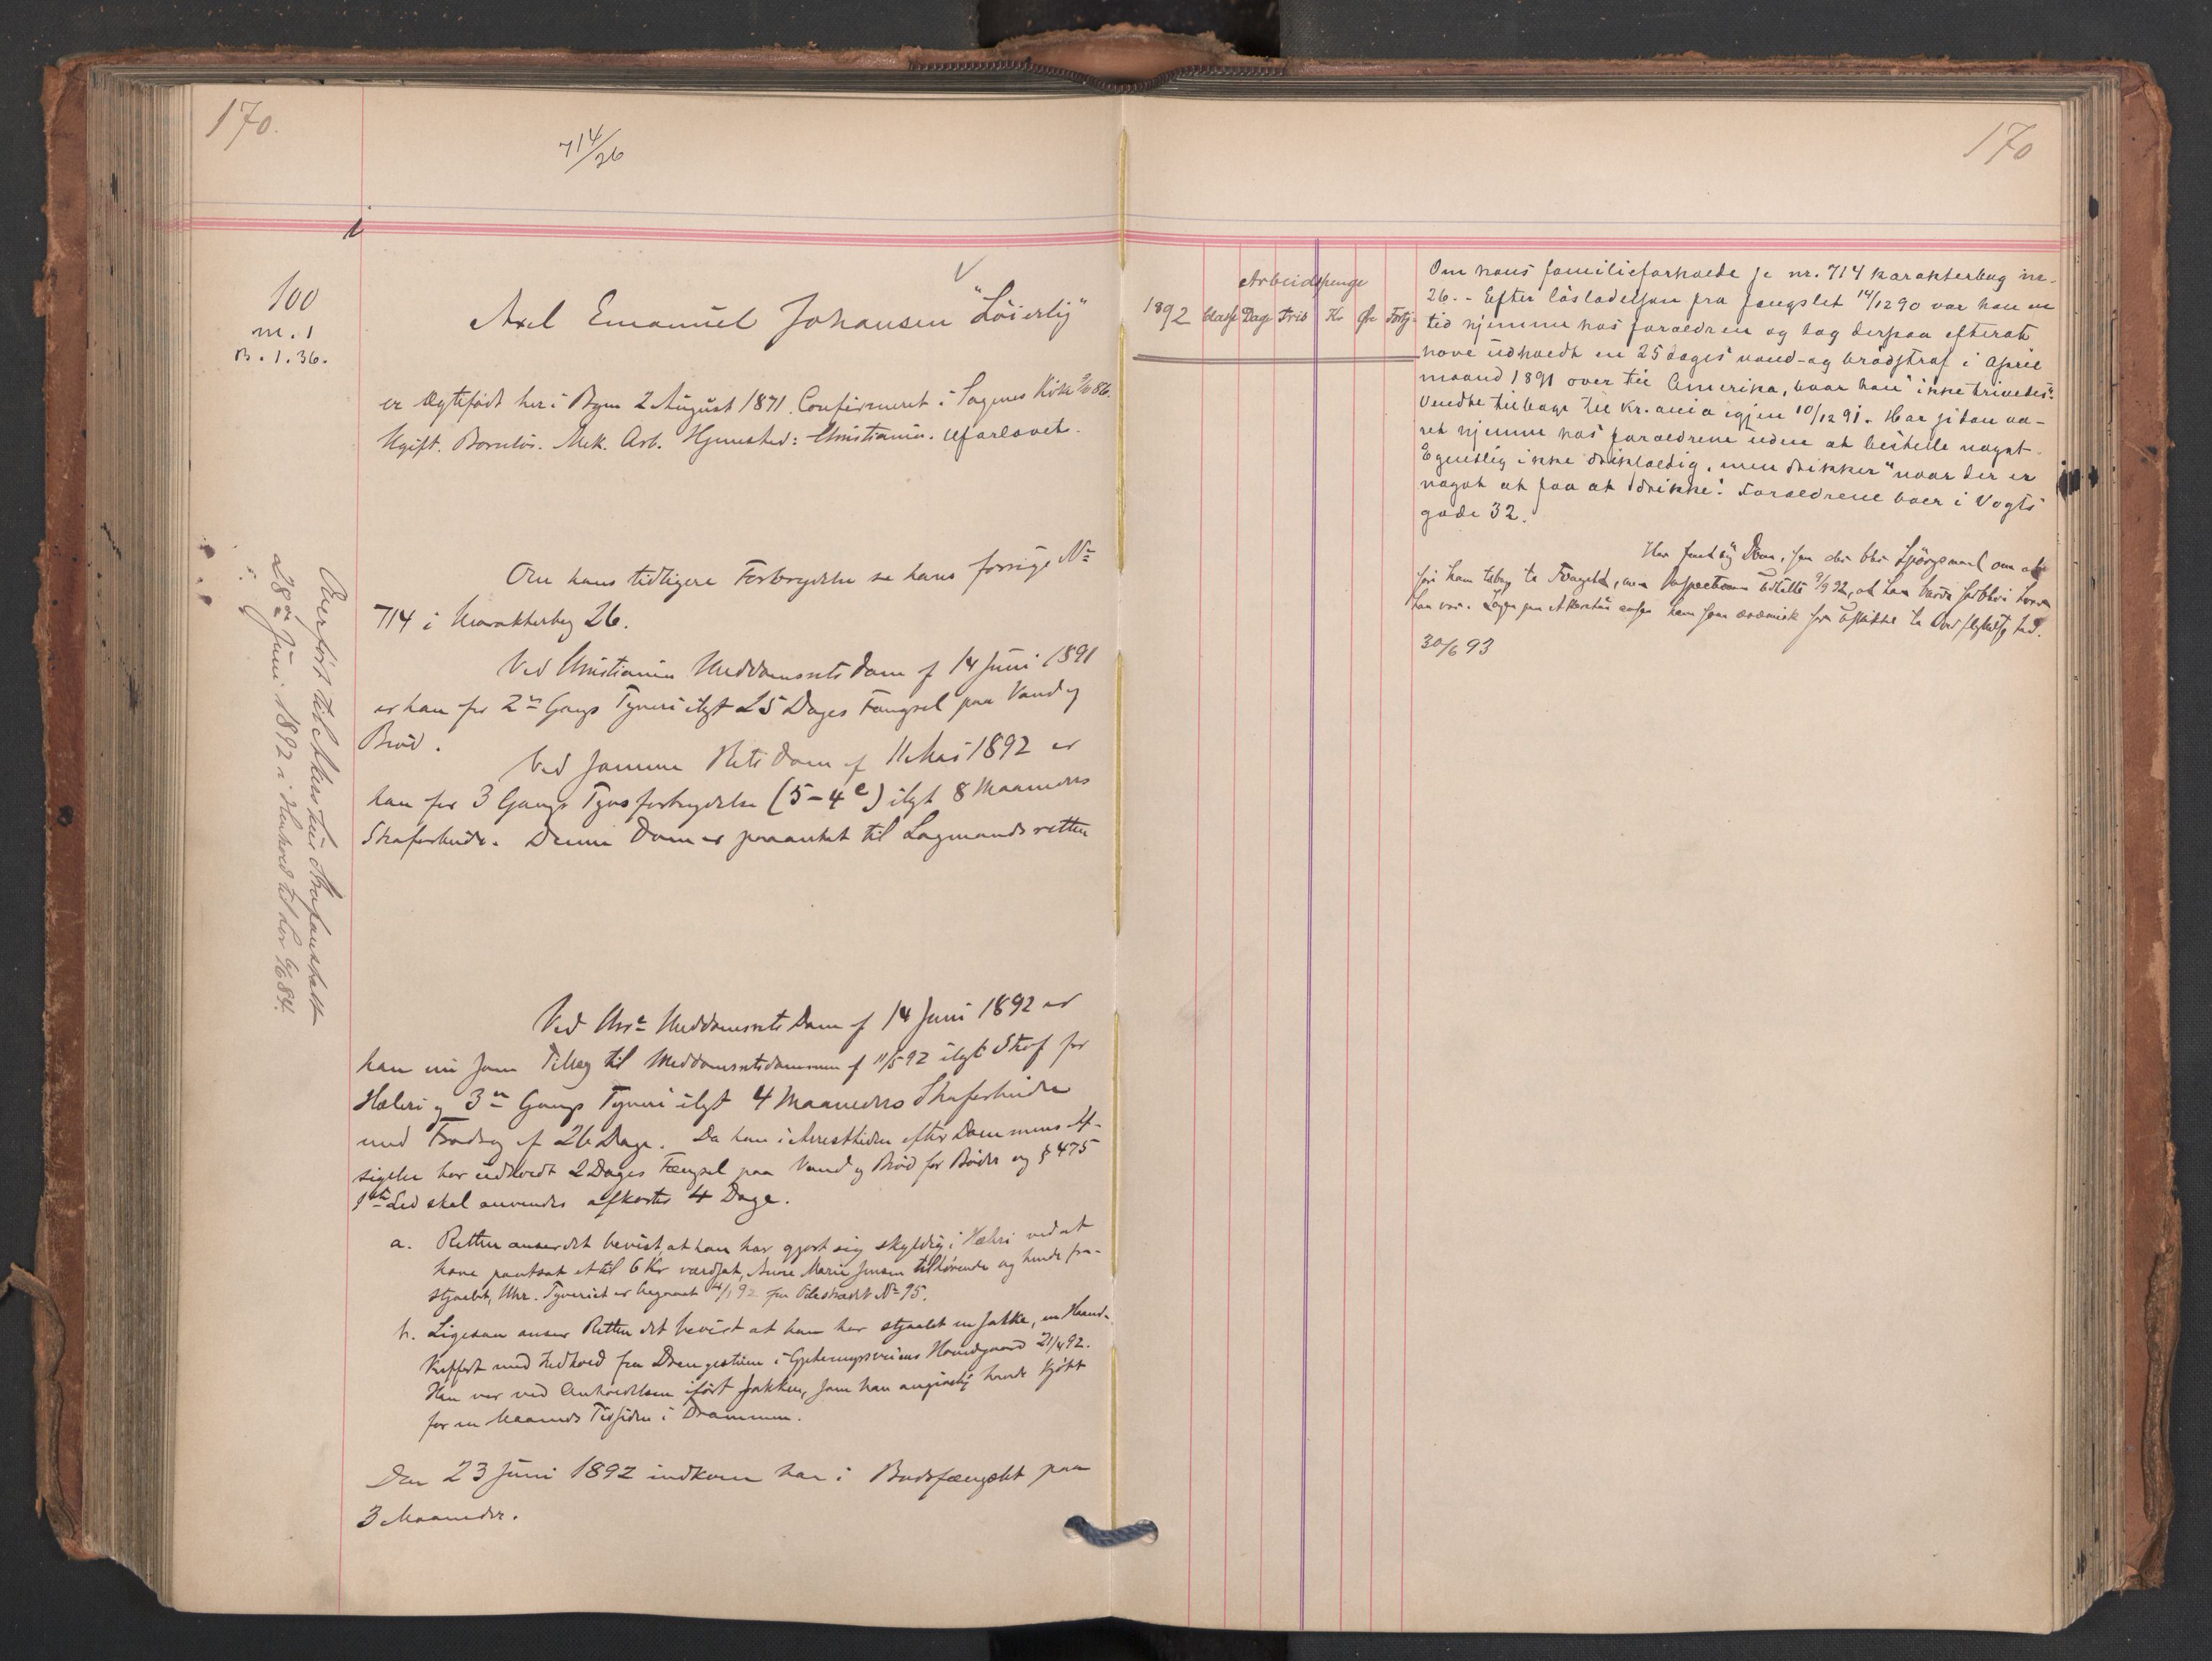 170.
714/26
100
m. 1
B. 1. 36.
Axel Emanuel Johansen "Löierlig"
er ægtefødt her i Byen 2 August 1871. Confirmeret i Sagenes Kirke 86.
Ugift. Barnløs. Mek. Arb. Hjemsted: Christiania. Uforlovet.
Om hans tidligere Forbrydelse se hans forrige No
714 i Karakterbog 26.
Ved Christiania Meddomsrets Dom af 14 Juni 1891
er han for 2den Gangs Tyveri ilagt 25 Dages Fængsel paa Vand og
Brød.
Ved samme Rets Dom af 11 Mai 1892 er
han for 3 Gangs Tyvsforbrydelse (5-4 e) ilagt 8 Maaneders
Strafarbeide. Denne Dom er paaanket til Lagmandsretten
Overført til Akershus Strafanstalt
28de Juni 1892 i Henhold til Lov 84.
Ved Chra Meddomsrets Dom af 14 Juni 1892 er
han nu som Tillæg til Meddomsretsdommen af 11/5 92 ilagt Straf for
Hæleri og 3die Gangs Tyveri ilagt 4 Maaneders Strafarbeide
med Fradrag af 26 Dage. Da han i Arresttiden efter Dommens Af-
sigelse har udholdt 2 Dages Fængsel paa Vand og Brød for Bøder og § 475
1ste Led skal anvendes afkortes 4 Dage.
a. Retten anser det bevist, at han har gjort sig skyldig i Hæleri ved at
have pantsat et til 6 Kr værdsat, Anne Marie Jensen tilhørende og hende fra-
stjaalet, Uhr. Tyveriet er begaaet 92 fra Pilestrædet No 95.
b. Ligesaa anser Retten det bevist at han har stjaalet en Jakke, en Haand-
Kuffert med Indhold fra Drengestuen i Gaardsrum 21/4 92.
Han var ved Anholdelsen iført Jakken, som han angivelig havde kjøbt
for en Maaneds Tid siden i Drammen.
Den 23 Juni 1892 indkom han i Bodsfængslet paa
3 Maaneder.
170
Arbeidspenge
1892 Classe Dage Frib Kr Øre Fortj.
Om hans familieforholde se nr. 714 karakterbog nr.
26. - Efter løsladelsen fra fængslet 14/12 90 var han en
tid hjemme hos forældrene og tog derpaa efterat
have udholdt en 25 dages vand- og brødstraf i April
maaned 1891 over til Amerika, hvor han "ikke trivedes".
Vendte tilbage til Kr.ania igjen 10/12 91. Har sidan væ-
ret hjemme hos forældrene uden at bestille noget.
Egentlig ikke drikfældig, men drikker "naar der er
noget at faa at drikke". Forældrene boer i Vogts
gade 32.
Har faaet ny Dom, saa der blev Spørgsmaal om at
føre ham tilbage til Fængslet, men Inspectionen 92, at han burde forblive hvor
han var. Lægen paa Akershus anser ham som
30/6 93